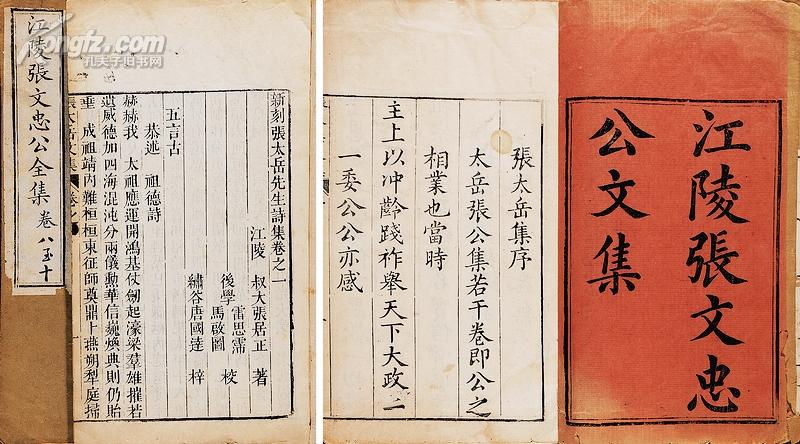 江陵張文忠
公文集
張太岳集序
太岳張公集若干卷即公之
相業也當時
主上以冲齡踐祚舉天下大政一
一委公公亦感
新刻張太岳先生詩集卷之一
江陵 叔大張居正 著
後學 雷思霈
馬啟圖 校
繡谷唐國達 梓
五言古
恭述 祖德詩
赫赫我 太祖應運開鴻基仗劒起濠梁羣雄摧若
遺威德加四海混沌分兩儀勳華信巍煥典則仍貽
垂 成祖靖內難桓桓東征師奠鼎卜燕朔犁庭掃
張太岳文集 卷之
江陵張文忠公全集 卷八至十
kongfz.com
孔夫子旧书网